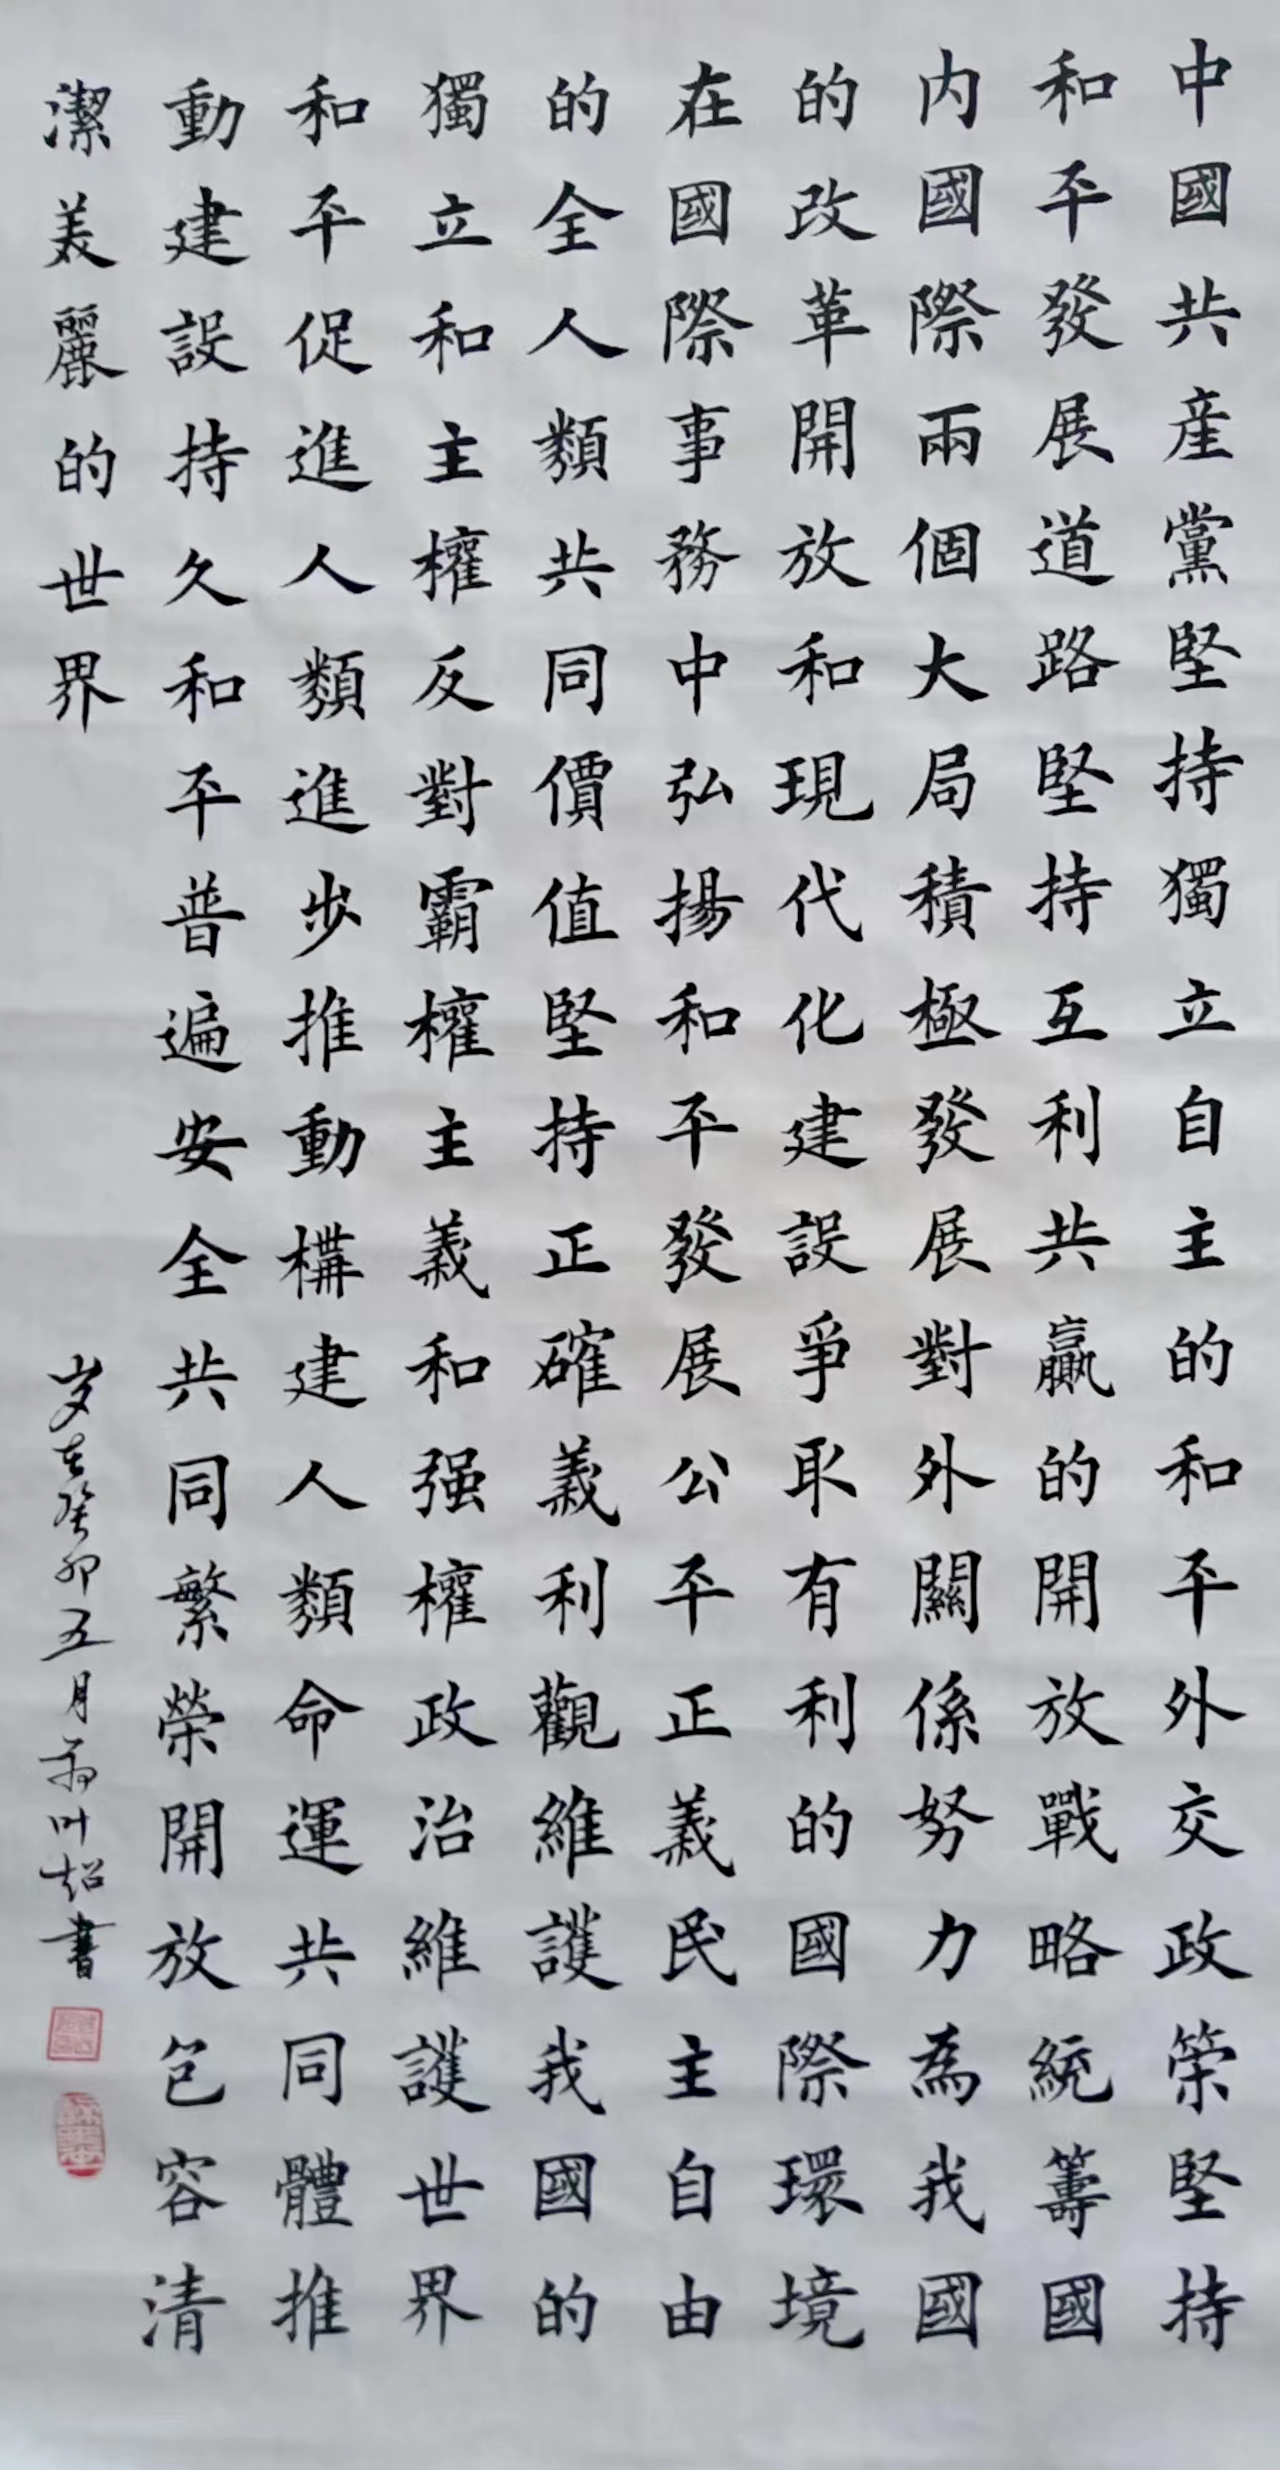 中國共産黨堅持獨立自主的和平外交政策堅持
和平發展道路堅持互利共贏的開放戰略統籌國
内國際兩個大局積極發展對外關係努力為我國
的改革開放和現代化建設爭取有利的國際環境
在國際事務中弘揚和平發展公平正義民主自由
的全人類共同價值堅持正確義利觀維護我國的
獨立和主權反對霸權主義和强權政治維護世界
和平促進人類進步推動構建人類命運共同體推
動建設持久和平普遍安全共同繁榮開放包容清
潔美麗的世界
岁在癸卯五月叶超書